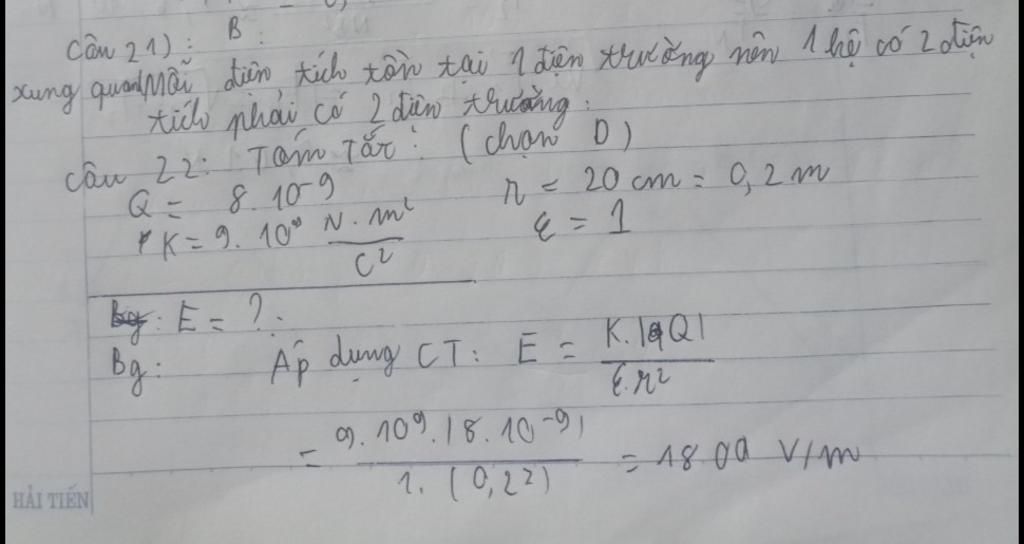 Câu 21): B.
xung quanh Mỗi điện tích tồn tại 1 điện trường nên 1 hệ có 2 điện
tích phải có 2 điện trường.
Câu 22: Tóm Tắt: (chọn D)
Q = 8.10-9 r = 20 cm = 0,2 m
K = 9.10⁹ N.m²/C² ε = 1
E = ?.
Bg: Áp dụng CT: E = K.|Q|/ε.r²
= 9.10⁹.|8.10⁻⁹|/1.(0,2²) = 1800 V/m
HẢI TIẾN